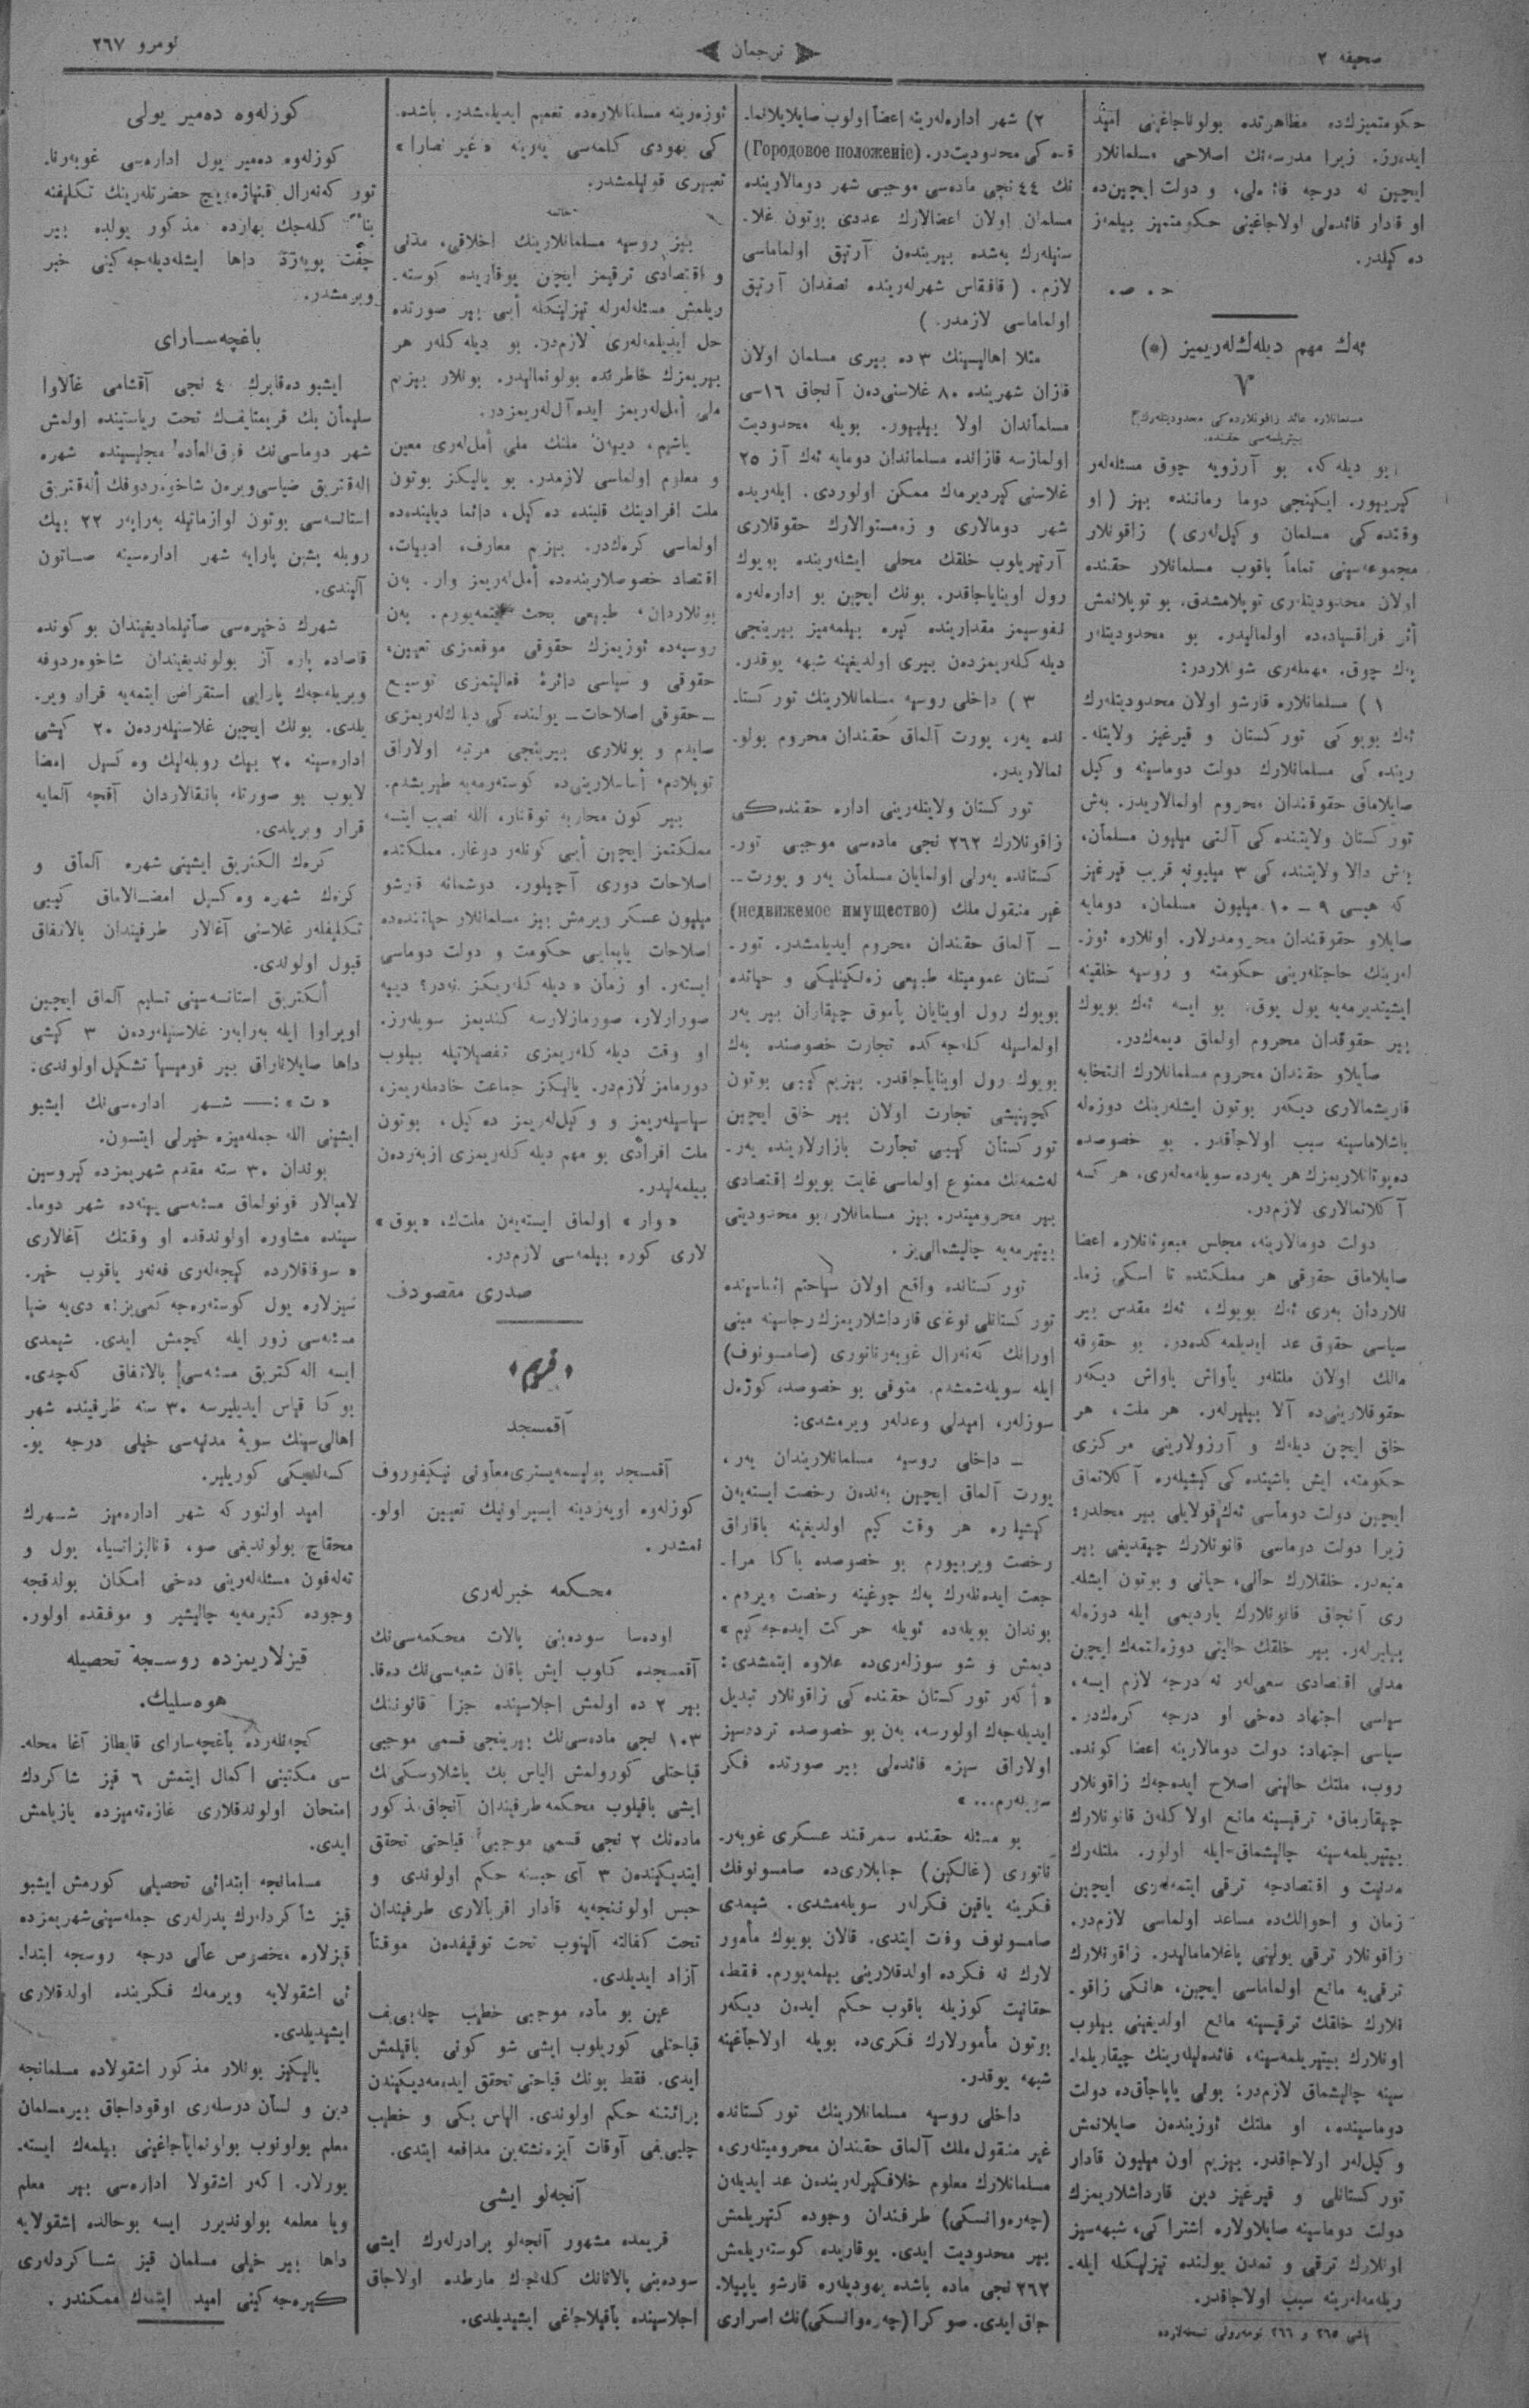 صحیفه ۲
ترجمان
نومرو ۲۶۷
حکومتمیزکده مظاهرتده بولوناجاغینی امید
ایده‌رز. زیرا مدرسه‌نك اصلاحی مسلمانلار
ایچین نه درجه فائده‌لی، و دولت ایچین‌ده
او قادار فائده‌لی اولاجاغینی حکومتمیز بیلمه‌ز
ده‌کیلدر.
ح . ص .
ئه‌ك مهم دیله‌ك‌له‌ریمیز (*)
۷
مسلمانلاره عائد زاقونلارده‌کی محدودیتله‌رك
بیتریلمه‌سی حقنده.
بو دیله‌که، بو آرزویه چوق مسئله‌له‌ر
کیریپور. ایکینجی دوما زماننده بیز (او
وقتده‌کی مسلمان وکیل‌له‌ری) زاقونلار
مجموعه‌سینی تماماً باقوب مسلمانلار حقنده
اولان محدودیتله‌ری توپلامشدق. بو توپلانمش
پك چوق. مهمله‌ری شونلاردر:
۱) مسلمانلاره قارشو اولان محدودیتله‌رك
ئه‌ك بویوکی تورکستان و قیرغیز ولایتله-
رینده‌کی مسلمانلارك دولت دوماسینه وکیل
صایلاماق حقوقندان محروم اولمالاریدر. به‌ش
تورکستان ولایتنده‌کی آلتی میلیون مسلمان،
به‌ش دالا ولایتنده‌کی ۳ میلیونه قریب قیرغیز
که هپسی ۹ – ۱۰ میلیون مسلمان، دومایه
صایلاو حقوقندان محرومدرلار. اونلاره ئوز-
له‌رینك حاجتله‌رینی حکومته و روسیه خلقینه
ایشیتدیرمه‌یه یول یوق. بو ایسه ئه‌ك بویوك
بیر حقوقدان محروم اولماق دیمه‌كدر.
صایلاو حقندان محروم مسلمانلارك انتخابه
قاریشمالاری دیکه‌ر بوتون ایشله‌رینك دوزه‌له
باشلاماسینه سبب اولاجاقدر. بو خصوصده
ده‌پوتاتلاریمزك هر یه‌رده سویله‌مه‌له‌ری، هر کسه
آکلاتمالاری لازم‌در.
دولت دومالارینه، مجلس مبعوثانلاره اعضا
صایلاماق حقوقی هر مملکتده تا اسکی زما-
نلاردان به‌ری ئه‌ك بویوك، ئه‌ك مقدس بیر
سیاسی حقوق عد ایدیلمه‌کده‌در. بو حقوقه
مالك اولان ملتله‌ر یاواش یاواش دیکه‌ر
حقوقلارینی‌ده آلا بیلیرله‌ر. هر ملت، هر
خلق ایچن دیله‌ك و آرزولارینی مرکزی
حکومته، ایش باشینده‌کی کیشیله‌ره آکلاتماق
ایچین دولت دوماسی ئه‌ك قولایلی بیر محلدر؛
زیرا دولت دوماسی قانونلارك چیقدیغی بیر
منبعدر. خلقلارك حالی، حیاتی و بوتون ایشله-
ری آنجاق قانونلارك یاردیمی ایله دوزه‌له
بیلیرله‌ر. بیر خلقك حالینی دوزه‌لتمه‌ك ایچین
مدنی اقتصادی سعی‌له‌ر نه درجه لازم ایسه،
سیاسی اجتهاد ده‌خی او درجه کره‌كدر.
سیاسی اجتهاد: دولت دومالارینه اعضا کونده-
روب، ملتك حالینی اصلاح ایده‌جه‌ك زاقونلار
چیقارماق، ترقیسینه مانع اولا کله‌ن قانونلارك
بیتیریلمه‌سینه چالیشماق-ایله اولور. ملتله‌رك
مدنیت و اقتصادجه ترقی ایتمه‌له‌ری ایچین
زمان و احوالك‌ده مساعد اولماسی لازم‌در.
زاقونلار ترقی یولینی باغلامامالیدر. زاقونلارك
ترقی‌یه مانع اولماماسی ایچین، هانکی زاقو-
نلارك خلقك ترقیسینه مانع اولدیغینی بیلوب
اونلارك بیتیریلمه‌سینه، فائده‌لیله‌رینك چیقاریلما-
سینه چالیشماق لازم‌در: بونی یاپاجاق‌ده دولت
دوماسینده، او ملتك ئوزیندن صایلانمش
وکیل‌له‌ر اولاجاقدر. بیزیم اون میلیون قادار
تورکستانلی و قیرغیز دین قارداشلاریمزك
دولت دوماسینه صایلاولاره اشتراکی، شبهه‌سیز
اونلارك ترقی و تمدن یولنده تیزلیکله ایله-
ریله‌مه‌له‌رینه سبب اولاجاقدر.
باشی ۲۶۵ و ۲۶۶ نومه‌رولی نسخه‌لارده
۲) شهر اداره‌له‌رینه اعضا اولوب صایلایلانما-
قده‌کی محدودیت‌در. (Городовое положеніе)
نك ٤٤ نجی ماده‌سی موجبی شهر دومالارینده
مسلمان اولان اعضالارك عددی بوتون غلا-
سنیله‌رك به‌شده بیریندن آرتیق اولماماسی
لازم. (قافقاس شهرله‌رینده نصفدان آرتیق
اولماماسی لازمدر.)
مثلا اهالیسینك ۳ ده بیری مسلمان اولان
قازان شهرینده ۸۰ غلاسنی‌دن آنجاق ۱۶سی
مسلماندان اولا بیلیپور. بویله محدودیت
اولمازسه قازانده مسلماندان دومایه ئه‌ك آز ۲۵
غلاسنی کیردیرمه‌ك ممکن اولوردی. ایله‌ریده
شهر دومالاری و زه‌مستوالارك حقوقلاری
آرتیریلوب خلقك محلی ایشله‌رینده بویوك
رول اوینایاجاقدر. بونك ایچین بو اداره‌له‌ره
نفوسیمز مقدارینده کیره بیلمه‌میز بیرینجی
دیله‌کله‌ریمزده‌ن بیری اولدیغینه شبهه یوقدر.
۳) داخلی روسیه مسلمانلارینك تورکستا-
نده یه‌ر، یورت آلماق حقندان محروم بولو-
نمالاریدر.
تورکستان ولایتله‌رینی اداره حقنده‌کی
زاقونلارك ۲۶۲ نجی ماده‌سی موجبی تور-
کستانده یه‌رلی اولمایان مسلمان یه‌ر و یورت –
غیر منقول ملك (недвижемое имущество)
– آلماق حقندان محروم ایدیلمشدر. تور-
کستان عمومیتله طبیعی زه‌نکینلیکی و حیاتده
بویوك رول اوینایان پاموق چیقاران بیر یه‌ر
اولماسیله کله‌جه‌کده تجارت خصوصنده پك
بویوك رول اوینایاجاقدر. بیزیم کیبی بوتون
کچینیشی تجارت اولان بیر خلق ایچین
تورکستان کیبی تجارت بازارلارینده یه‌ر-
له‌شمه‌نك ممنوع اولماسی غایت بویوك اقتصادی
بیر محرومیتدر. بیز مسلمانلار بو محدودیتی
بیتیرمه‌یه چالیشمالی‌یز.
تورکستانده واقع اولان سیاحتم اثناسینده
تورکستانلی نوغای قارداشلاریمزك رجاسینه مبنی
اورانك که‌نه‌رال غوبه‌رناتوری (صامسونوف)
ایله سویله‌شمشدم. متوفی بو خصوصده، کوزه‌ل
سوزله‌ر، امیدلی وعدله‌ر ویرمشدی:
– داخلی روسیه مسلمانلاریندان یه‌ر،
یورت آلماق ایچین به‌ندن رخصت ایسته‌یه‌ن
کیشیله‌ره هر وقت کیم اولدیغینه باقاراق
رخصت ویریپورم بو خصوصده باکا مرا-
جعت ایده‌نله‌رك پك چوغینه رخصت ویردم.
بوندان بویله‌ده ئویله حرکت ایده‌جه‌کیم»
دیمش و شو سوزله‌ری‌ده علاوه ایتمشدی:
«أکه‌ر تورکستان حقنده‌کی زاقونلار تبدیل
ایدیله‌جه‌ك اولورسه، به‌ن بو خصوصده ترددسیز
اولاراق سیزه فائده‌لی بیر صورتده فکر
سویله‌رم...»
بو مسئله حقنده سمرقند عسکری غوبه‌ر-
ناتوری (غالکین) جنابلاری‌ده صامسونوفك
فکرینه یاقین فکرله‌ر سویله‌مشدی. شیمدی
صامسونوف وفات ایتدی. قالان بویوك مأمور
لارك نه فکرده اولدقلارینی بیلمه‌یورم. فقط،
حقانیت کوزیله باقوب حکم ایدن دیکه‌ر
بوتون مأمورلارك فکری‌ده بویله اولاجاغینه
شبهه یوقدر.
داخلی روسیه مسلمانلارینك تورکستانده
غیر منقول ملك آلماق حقندان محرومیتله‌ری،
مسلمانلارك معلوم خلافکیرله‌ریندن عد ایدیله‌ن
(چه‌ره‌وانسکی) طرفندان وجوده کتیریلمش
بیر محدودیت ایدی. یوقاریده کوسته‌ریلمش
۲۶۲ نجی ماده باشده یهودیله‌ره قارشو یاپیلا-
جاق ایدی. صوکرا (چه‌ره‌وانسکی)نك اصراری
ئوزه‌رینه مسلمانلاره‌ده تعمیم ایدیلمشدر. باشده-
کی یهودی کلمه‌سی یه‌رینه «غیر نصارا»
تعبیری قونیلمشدر.
خاتمه
بیز روسیه مسلمانلارینك اخلاقی، مدنی
و اقتصادی ترقیمز ایچن یوقاریده کوسته-
ریلمش مسئله‌له‌رله تیزلیکله أیی بیر صورتده
حل ایدیلمه‌له‌ری لازم‌در. بو دیله‌کله‌ر هر
بیریمزك خاطرنده بولونمالیدر. بونلار بیزیم
ملی أمل‌له‌ریمز ایده‌آل‌له‌ریمزدر.
یاشیم، دییه‌ن ملتك ملی أمل‌له‌ری معین
و معلوم اولماسی لازمدر. بو یالیکز بوتون
ملت افرادینك قلبنده ده‌کیل، دائما دیلینده‌ده
اولماسی کره‌كدر. بیزیم معارف، ادبیات،
اقتصاد خصوصلارینده‌ده أمل‌له‌ریمز وار. به‌ن
بونلاردان، طبیعی بحث ایتمه‌یورم. به‌ن
روسیه‌ده ئوزیمزك حقوقی موقعمزی تعیین،
حقوقی و سیاسی دائرۀ فعالیتمزی توسیع
– حقوقی اصلاحات – یولنده‌کی دیله‌ك‌له‌ریمزی
صایدم و بونلاری بیرینجی مرتبه اولاراق
توپلادم، أساسلارینی‌ده کوسته‌رمه‌یه طیریشدم.
بیر کون محاربه توقتار، الله نصیب ایتسه
مملکتمز ایچین أیی کونله‌ر دوغار. مملکتده
اصلاحات دوری آچیلور. دوشمانه قارشو
میلیون عسکر ویرمش بیز مسلمانلار حیاتنده‌ده
اصلاحات یاپمایی حکومت و دولت دوماسی
ایسته‌ر. او زمان «دیله‌کله‌ریکز نه‌در؟ دییه
صورارلار، صورمازلارسه کندیمز سویله‌رز.
او وقت دیله‌کله‌ریمزی تفصیلاتیله بیلوب
دورمامز لازم‌در. یالیکز جماعت خادمله‌ریمز،
سیاسیله‌ریمز و وکیل‌له‌ریمز ده‌کیل، بوتون
ملت افرادی بو مهم دیله‌کله‌ریمزی ازبه‌ردن
بیلمه‌لیدر.
«وار» اولماق ایسته‌یه‌ن ملت‌ك، «یوق»
لاری کوره بیلمه‌سی لازم‌در.
صدری مقصودف
«قریم»
آقمسجد
آقمسجد پولیسمه‌یستری معاونی نیکیفوروف
کوزله‌وه اویه‌زدینه ایسپراونیك تعیین اولو-
نمشدر.
محکمه خبرله‌ری
اوده‌سا سوده‌بنی پالات محکمه‌سی‌نك
آقمسجده کلوب ایش باقان شعبه‌سی‌نك ده‌قا-
بیر ۲ ده اولمش اجلاسینده جزا قانوننك
۱۰۳ نجی ماده‌سی‌نك بیرینجی قسمی موجبی
قباحتلی کورولمش الیاس بك باشلارسکی‌نك
ایشی باقیلوب محکمه طرفیندان آنجاق مذکور
ماده‌نك ۲ نجی قسمی موجبی قباحتی تحقق
ایتدیکیندن ۳ آی حبسنه حکم اولوندی و
حبس اولونجه‌یه قادار اقربالاری طرفیندان
تحت کفالته آلینوب تحت توقیفدن موقتاً
آزاد ایدیلدی.
عین بو ماده موجبی خطیب چله‌بی‌یف
قباحتلی کوریلوب ایشی شو کونی باقیلمش
ایدی. فقط بونك قباحتی تحقق ایده‌مه‌دیکیندن
برائتنه حکم اولوندی. الیاس بکی و خطیب
چلبی‌یفی آوقات آیزه‌نشته‌ین مدافعه ایتدی.
آنجه‌لو ایشی
قریمده مشهور آنجه‌لو برادرله‌رك ایشی
سوده‌بنی پالاتانك کله‌جه‌ك مارطده اولاجاق
اجلاسینده باقیلاجاغی ایشیدیلدی.
کوزله‌وه ده‌میر یولی
کوزله‌وه ده‌میر یول اداره‌سی غوبه‌رنا-
تور که‌نه‌رال قنیاژه‌ویچ حضرتله‌رینك تکلیفنه
بناءً کله‌جك بهارده مذکور یولده بیر
جفت پویه‌زد داها ایشله‌دیله‌جه‌کینی خبر
ویرمشدر.
باغچه‌سارای
ایشبو ده‌قابرك ٤ نجی آقشامی غالاوا
سلیمان بك قریمتایف‌ك تحت ریاستینده اولمش
شهر دوماسی‌نك فوق‌العاده مجلیسینده شهره
اله‌قتریق ضیاسی ویرن شاخوردوفك أله‌قتریق
استانسه‌سی بوتون لوازماتیله به‌رابه‌ر ۲۲ بیك
روبله پشین پارایه شهر اداره‌سینه صاتون
آلیندی.
شهرك ذخیره‌سی صاتیلمادیغیندان بو کونده
قاصاده پاره آز بولوندیغیندان شاخوه‌ردوفه
ویریله‌جه‌ك پارایی استقراض ایتمه‌یه قرار ویر-
یلدی. بونك ایچین غلاسنیله‌ردن ۲۰ کیشی
اداره‌سینه ۲۰ بیك روبله‌لیك وه‌کسیل امضا
لایوب بو صورتله بانقالاردان آقچه آلمایه
قرار ویریلدی.
کره‌ك الکتریق ایشینی شهره آلماق و
کره‌ك شهره وه‌کسیل امضالاماق کیبی
تکلیفله‌ر غلاسنی آغالار طرفیندان بالاتفاق
قبول اولوندی.
ألکتریق استانسه‌سینی تسلیم آلماق ایچین
اوپراوا ایله به‌رابه‌ر غلاسنیله‌ردن ۳ کیشی
داها صایلاناراق بیر قومیسیا تشکیل اولوندی:
«ت»: — شهر اداره‌سی‌نك ایشبو
ایشینی الله جمله‌میزه خیرلی ایتسون.
بوندان ۳۰ سنه مقدم شهریمزده کیروسین
لامپالار قونولماق مسئه‌سی پینه‌ده شهر دوما-
سینده مشاوره اولوندقده او وقتك آغالاری
«سوقاقلارده کیجه‌له‌ری فه‌نه‌ر یاقوب خیر-
سیزلاره یول کوسته‌ره‌جه‌کمی‌یز!» دی‌یه ضیا
مسئه‌سی زور ایله کچمش ایدی. شیمدی
ایسه اله‌کتریق مسئه‌سی بالاتفاق که‌چدی.
بوکا قیاس ایدیلیرسه ۳۰ سنه ظرفینده شهر
اهالی‌سینك سویۀ مدنیه‌سی خیلی درجه یو-
کسه‌لدیکی کوریلیر.
امید اولنور که شهر اداره‌میز شهرك
محتاج بولوندیغی صو، قنالیزاتسیا، یول و
ته‌له‌فون مسئله‌له‌رینی ده‌خی امکان بولدقجه
وجوده کتیرمه‌یه چالیشیر و موفقده اولور.
قیزلاریمزده روسجه تحصیله
هوه‌سلیك.
کچه‌نله‌رده باغچه‌سارای قایطاز آغا محله-
سی مکتبنی اکمال ایتمش ۶ قیز شاکردك
امتحان اولوندقلاری غازه‌ته‌میزده یازیلمش
ایدی.
مسلمانجه ابتدائی تحصیلی کورمش ایشبو
قیز شاکردله‌رك پدرله‌ری جمله‌سینی شهریمزده
قیزلاره مخصوص عالی درجه روسجه ابتدا-
ئی اشقولایه ویرمه‌ك فکرینده اولدقلاری
ایشیدیلدی.
یالیکز بونلار مذکور اشقولاده مسلمانجه
دین و لسان درسله‌ری اوقوداجاق بیر مسلمان
معلم بولونوب بولونمایاجاغینی بیلمه‌ك ایسته-
یورلار. اکه‌ر اشقولا اداره‌سی بیر معلم
ویا معلمه بولوندیرر ایسه بوحالده اشقولایه
داها بیر خیلی مسلمان قیز شاکردله‌ری
کیره‌جه‌کینی امید ایتمه‌ك ممکندر.